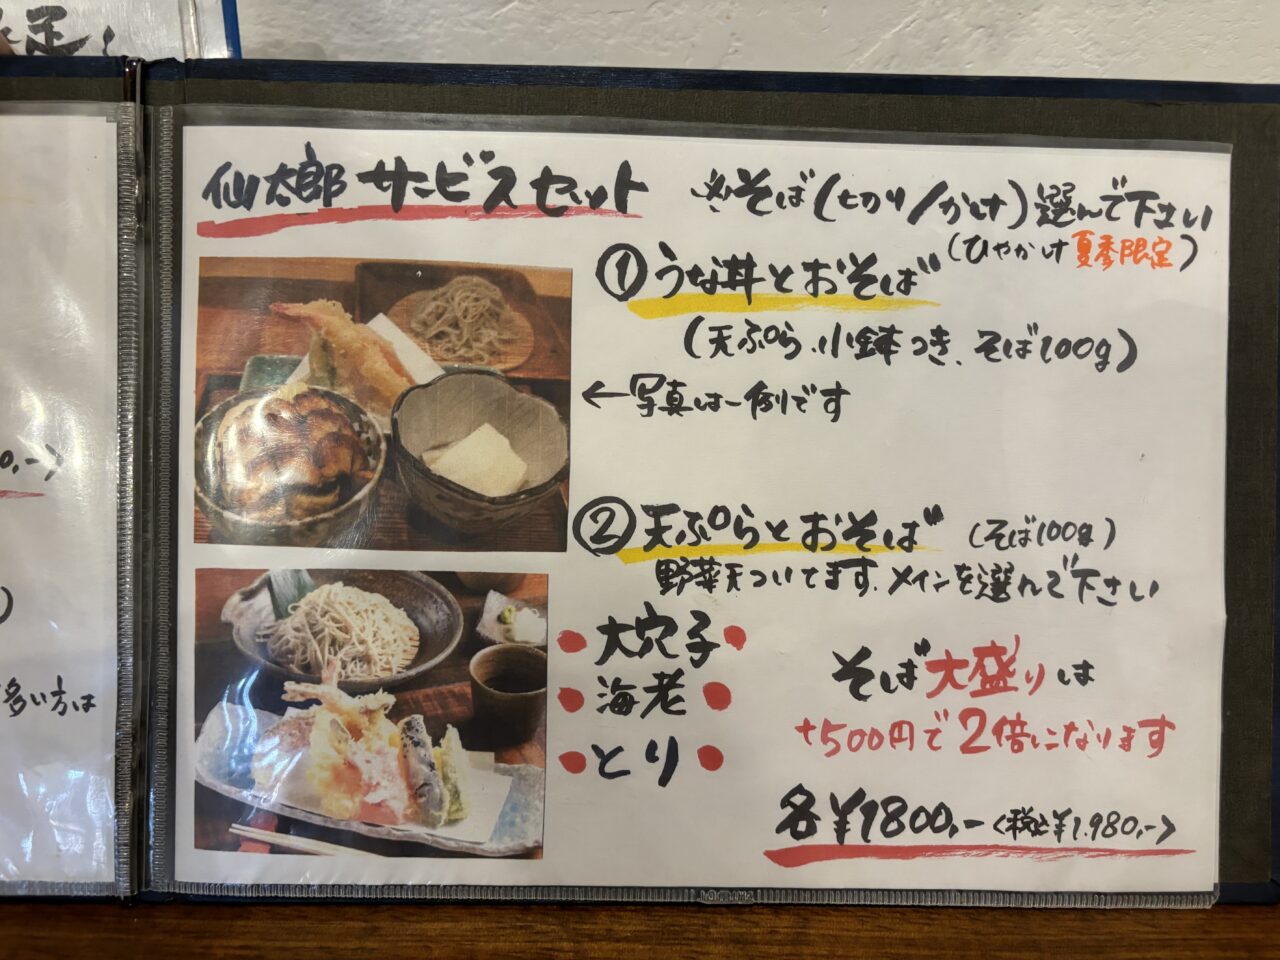 仙太郎 サービスセット
※そば(せいり/かけ)選んで下さい
(ひやかけ夏季限定)
① うな丼とおそば
(天ぷら、小鉢つき、そば100g)
←写真は一例です
② 天ぷらとおそば (そば100g)
野菜天ついてます。メインを選んで下さい
• 大穴子 •
• 海老 •
• とり •
そば大盛りは
+500円で2倍になります
各¥1800,-<税込¥1,980,->
0,->
)
多い方は